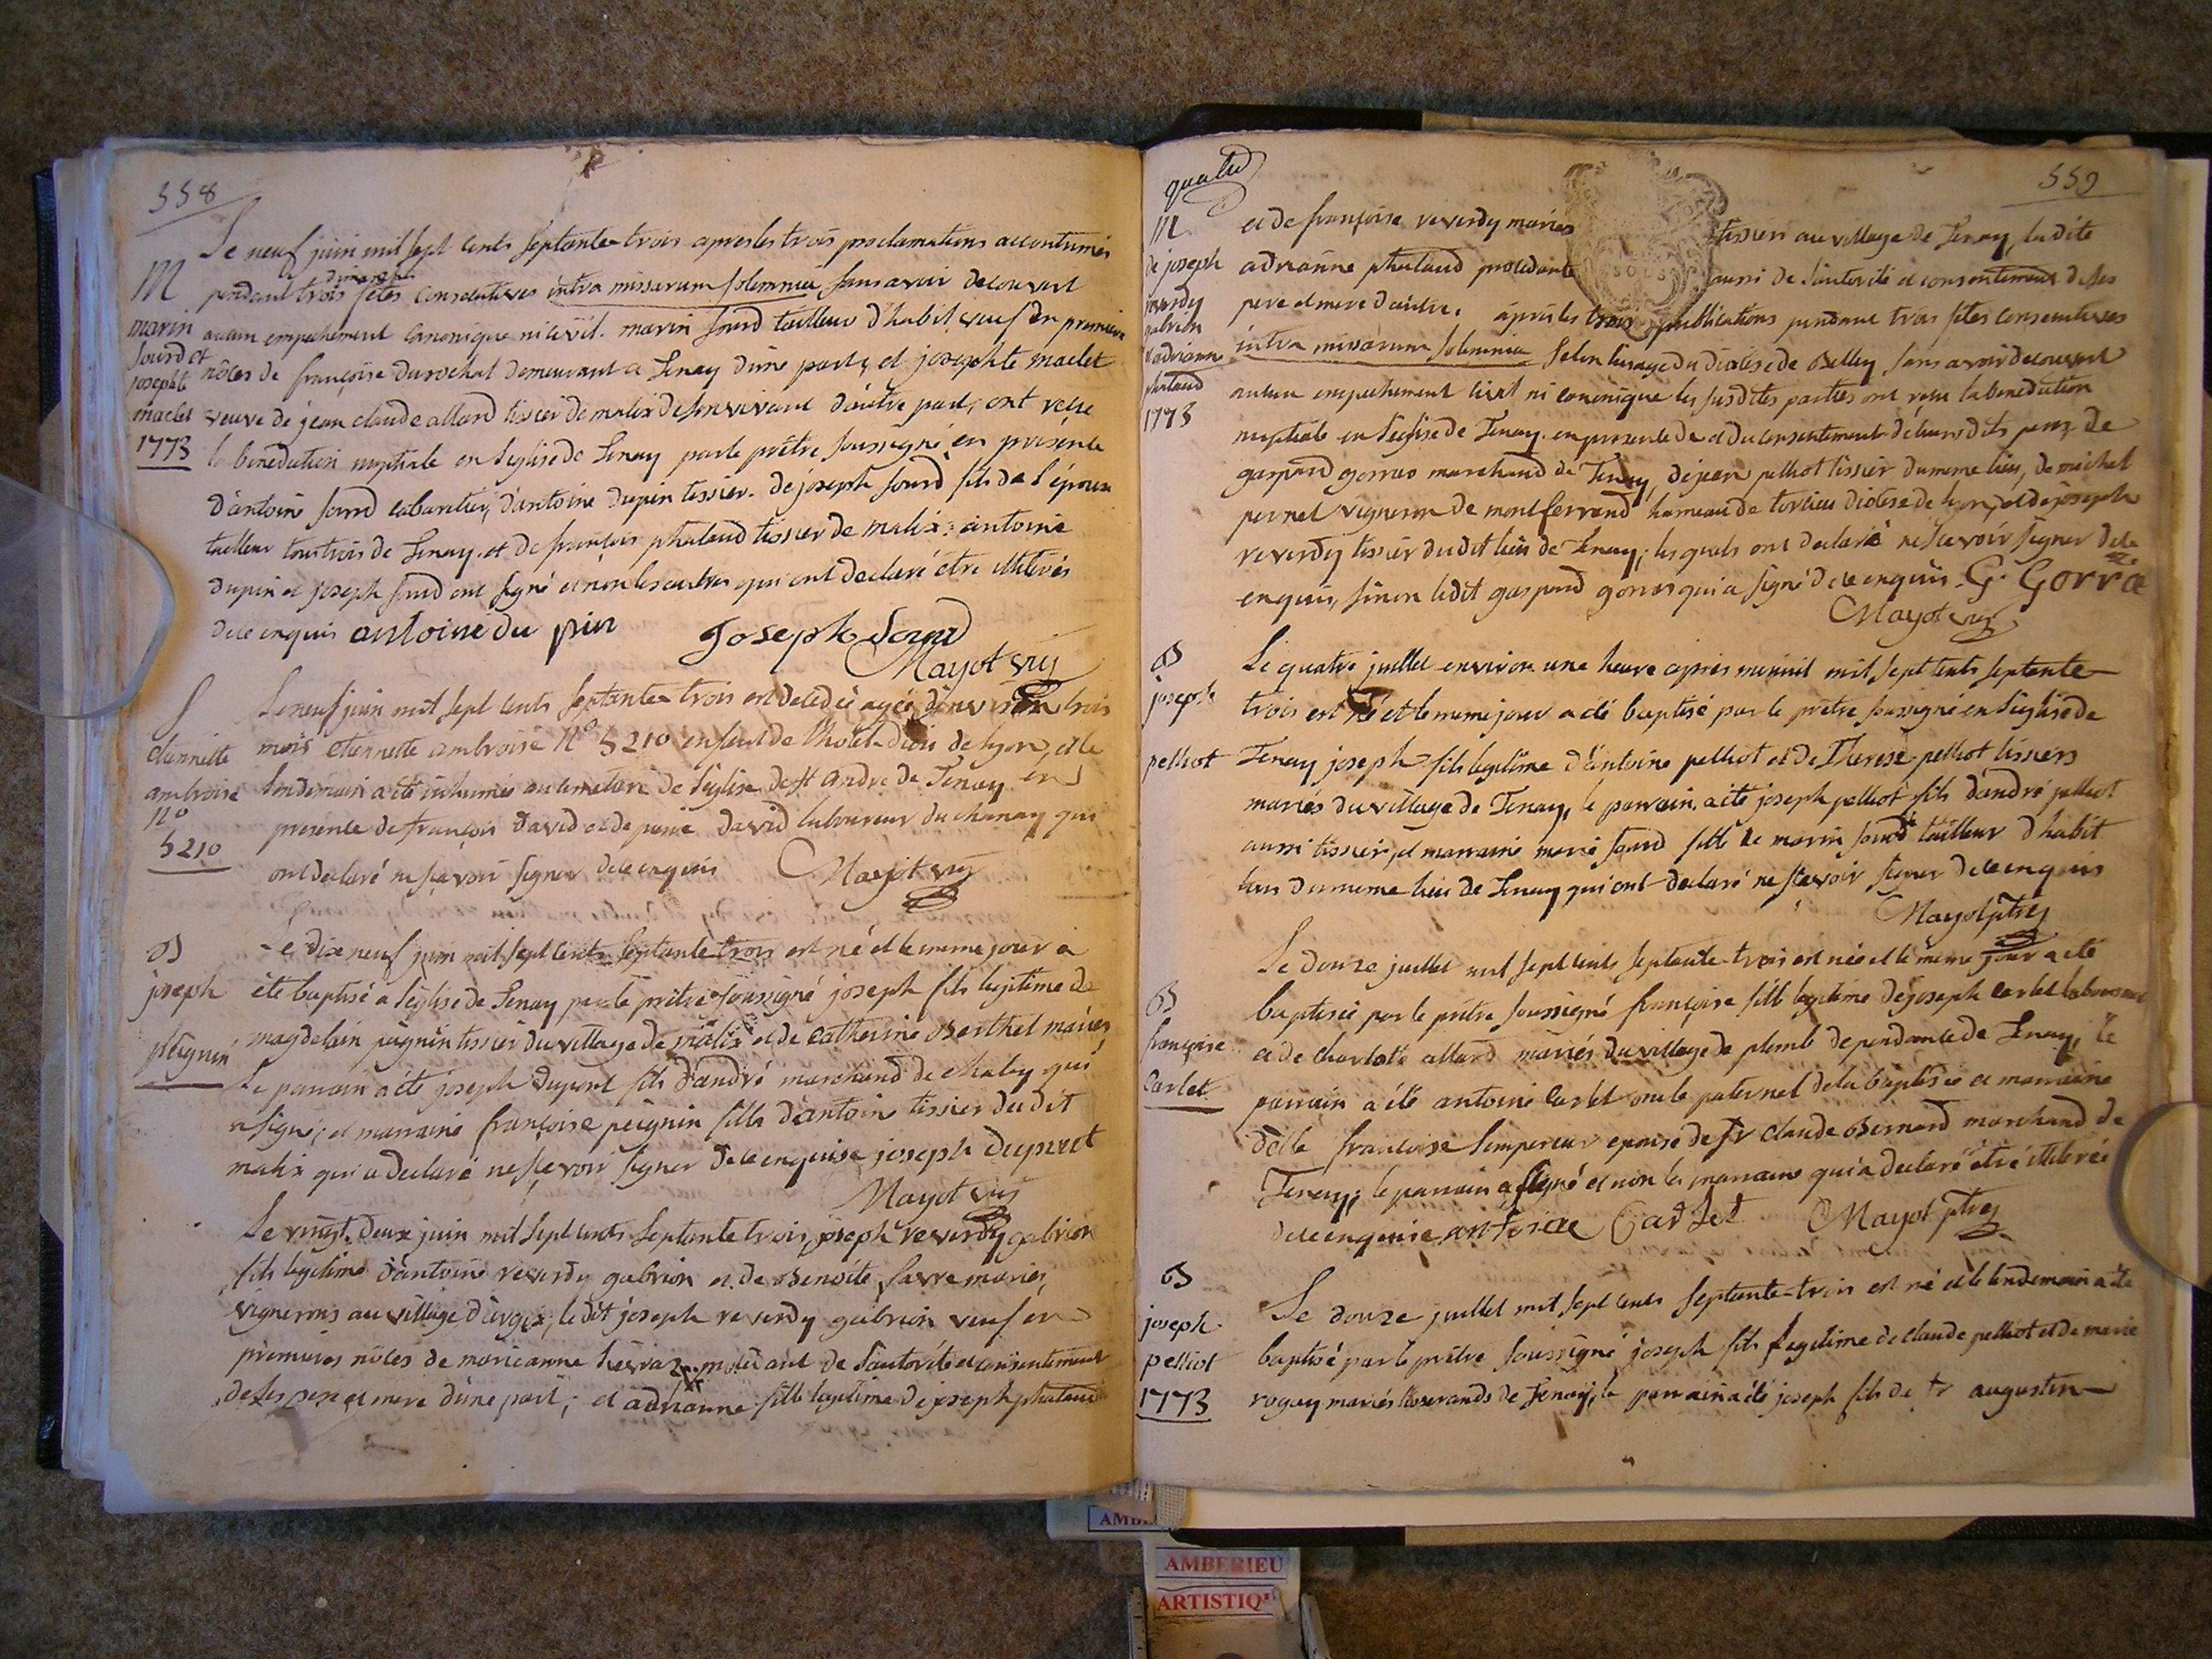 558
M
marin
sourd et
josephte
maclet
1773
Le neuf juin mil sept cents septante-trois apres les trois proclamations accoutumés
pendant trois dimanches fêtes consecutives intra missarum solemnia sans avoir decouvert
aucun empechement canonique ni civil. marin sourd tailleur d'habit veuf en premieres
nôces de françoise durochat demeurant a Tenay d'une part, et josephte maclet
veuve de jean claude allard tissier de malix de son vivant d'autre part, ont reçu
la benediction nuptiale en l'eglise de Tenay par le prêtre soussigné en présence
d'antoine sourd cabaretier, d'antoine dupin tissier. de joseph sourd fils de l'époux
tailleur tous trois de Tenay. et de françois phataud tissier de malix: antoine
dupin et joseph sourd ont signé et non les autres qui ont declaré être illiterés
de ce enquis antoine du pin Joseph Sourd
Mayot vic
S
etiennette
ambroise
N°
5210
Le neuf juin mil sept cents septante-trois est decedée agée d'environ trois
mois etiennette ambroise N° 5210 enfant de l'hotel-dieu de lyon, et le
lendemain a été inhumée au cimetiere de l'eglise de st andré de Tenay en
presence de françois david et de david laboureur du chanay qui
ont declaré ne sçavoir signer de ce enquis Mayot vic
B
joseph
peignin
Le dix neuf juin mil sept cents septante trois est né et le meme jour a
été baptisé a l'eglise de Tenay par le prêtre soussigné joseph fils legitime de
magdelain peignin tissier du village de malix et de catherine Berthet mariés
Le parrain a été joseph dupont fils d'andré marchand de qui
a signé; et marraine françoise peignin fille d'antoine tissier dudit
malix qui a declaré ne sçavoir signer de ce enquise joseph
Mayot vic
Le vingt-deux juin mil sept cents septante trois, joseph reverdy gabrion
fils legitime d'antoine reverdy gabrion et de Benoite favre mariés,
vignerons au village d'argix, le dit joseph reverdy gabrion veuf en
premieres nôces de marieanne procedant de l'autorité et consentement
de ses pere et mere d'une part; et adrianne fille legitime de joseph phataud
quatre
559
M
de joseph
reverdy
gabrion
et adrianne
phataud
1773
et de françoise reverdy mariés tissiers au village de Tenay, ladite
adrianne phataud procedante aussi de l'autorité et consentement de ses
pere et mere d'autre. après les trois publications pendant trois fêtes consecutives
intra missarum solemnia selon l'usage du diocèse de Belley sans avoir decouvert
aucun empechement civil ni canonique les susdites parties ont reçu la benediction
nuptiale en l'eglise de Tenay en presence de et du consentement de leurs dits peres de
gaspard gorras marchand de Tenay, de jean pelliot tissier du meme lieu, de michel
pernet vigneron de montferrand hameau de torcieu diocèse de lyon, et de joseph
reverdy tissier dudit lieu de Tenay; lesquels ont declaré ne sçavoir signer de ce
enquis, sinon ledit gaspard gorras qui a signé de ce enquis G. Gorra
Mayot vic
B
joseph
pelliot
Le quatre juillet environ une heure après minuit mil sept cents septante-
trois est né et le meme jour a été baptisé par le prêtre soussigné en l'eglise de
Tenay joseph fils legitime d'antoine pelliot et de Therese pelliot tissiers
mariés du village de Tenay, le parrain a été joseph pelliot fils d'andré pelliot
aussi tissier, et marraine marie sourd fille de marin sourd tailleur d'habit
tous du meme lieu de Tenay qui ont declaré ne sçavoir signer de ce enquis
Mayot ptre
B
françoise
Carlet
Le douze juillet mil sept cents septante-trois est née et le même jour a été
baptisée par le prêtre soussigné françoise fille legitime de joseph carlet laboureur
et de charlotte allard mariés du village de plomb dependante de Tenay, le
parrain a été antoine carlet oncle paternel de la baptisée et marraine
dlle françoise Lempereur epouse de sr claude Bernard marchand de
Tenay; le parrain a signé et non la marraine qui a declaré être illiterée
de ce enquise antoine Carlet Mayot ptre
B
joseph
pelliot
1773
Le douze juillet mil sept cents septante-trois est né et le lendemain a été
baptisé par le prêtre soussigné joseph fils legitime de claude pelliot et de marie
roguy mariés tisserands de Tenay, le parrain a été joseph fils de sr augustin
AMBERIEU
ARTISTIQ